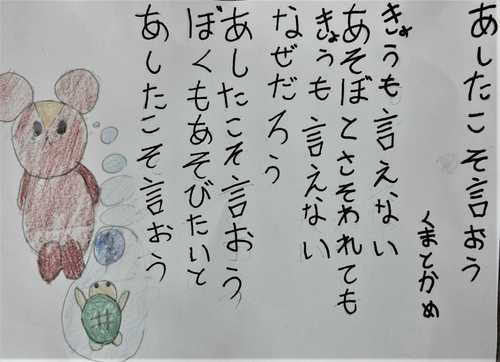 あしたこそ言おう
くまとかめ
きょうも言えない
あそぼとさそわれても
きょうも言えない
なぜだろう
あしたこそ言おう
ぼくもあそびたいと
あしたこそ言おう